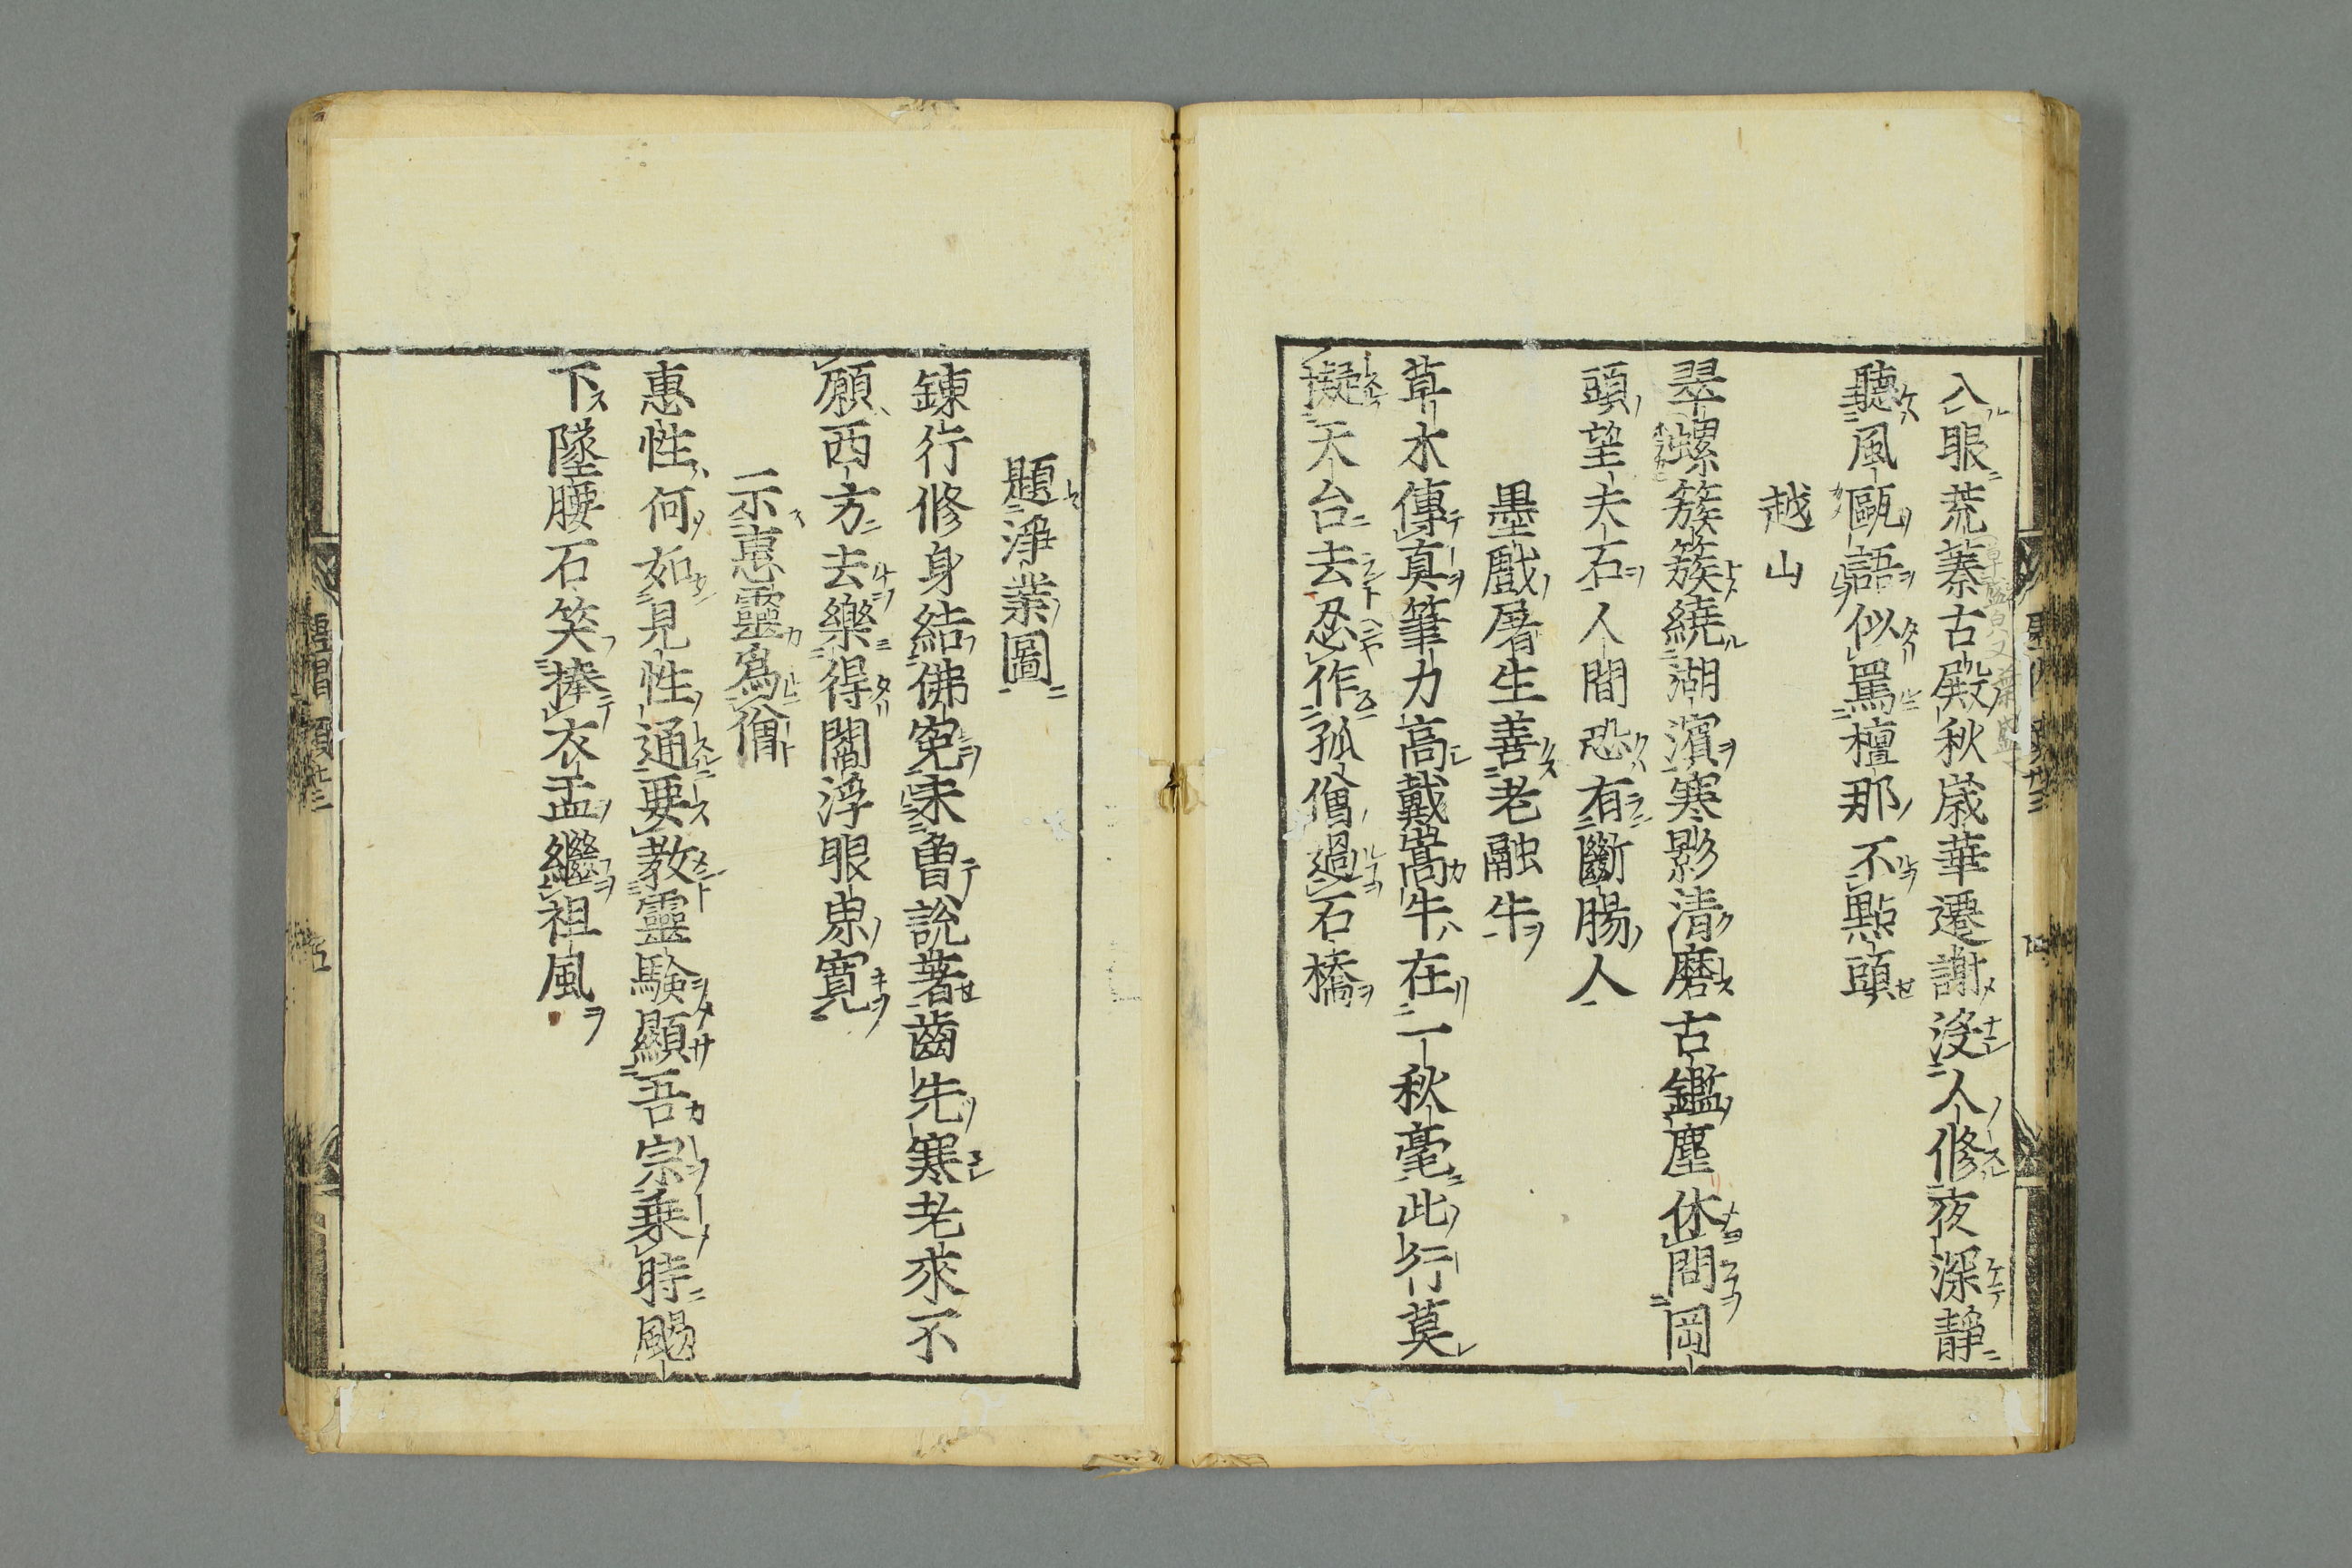 入眼荒蓁古殿秋歳華遷謝没人修夜深靜
聽風甌語似罵檀那不點頭
越山
翠螺簇簇繞湖濱寒影清磨古鑑塵休問岡
頭望夫石人間恐有斷膓人
墨戲屠生善老融牛
草木傳真筆力高戴嵩牛在一秋毫此行莫
擬天台去忍作孤僧過石橋
題淨業圖
鍊行修身結佛寃未曾說著齒先寒老來不
願西方去樂得閻浮眼界寬
示惠靈爲僧
惠性何如見性通要教靈驗顯吾宗乗時颺
下墜腰石笑捧衣盂繼祖風